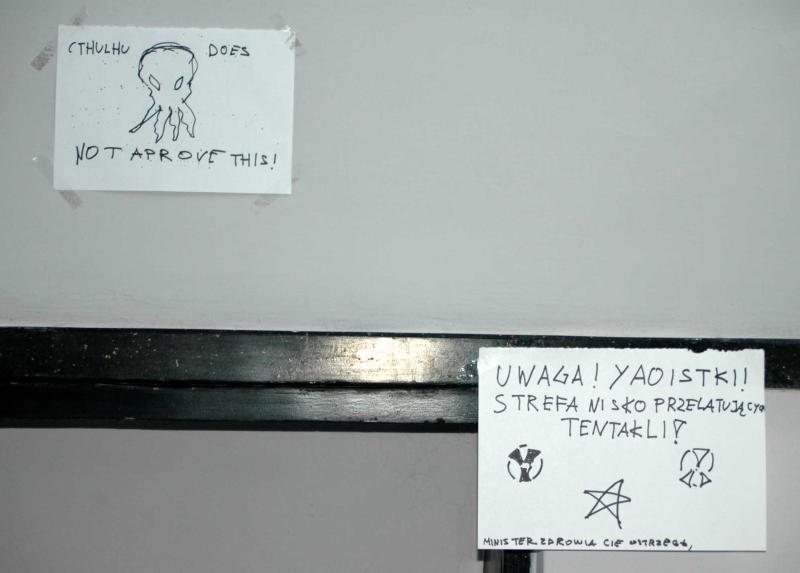 CTHULHU DOES
NOT APROVE THIS!
UWAGA! YAOISTKI!
STREFA NISKO PRZELATUJĄCYCH
TENTAKLI!
MINISTER ZDROWIA CIE OSTRZEGA,